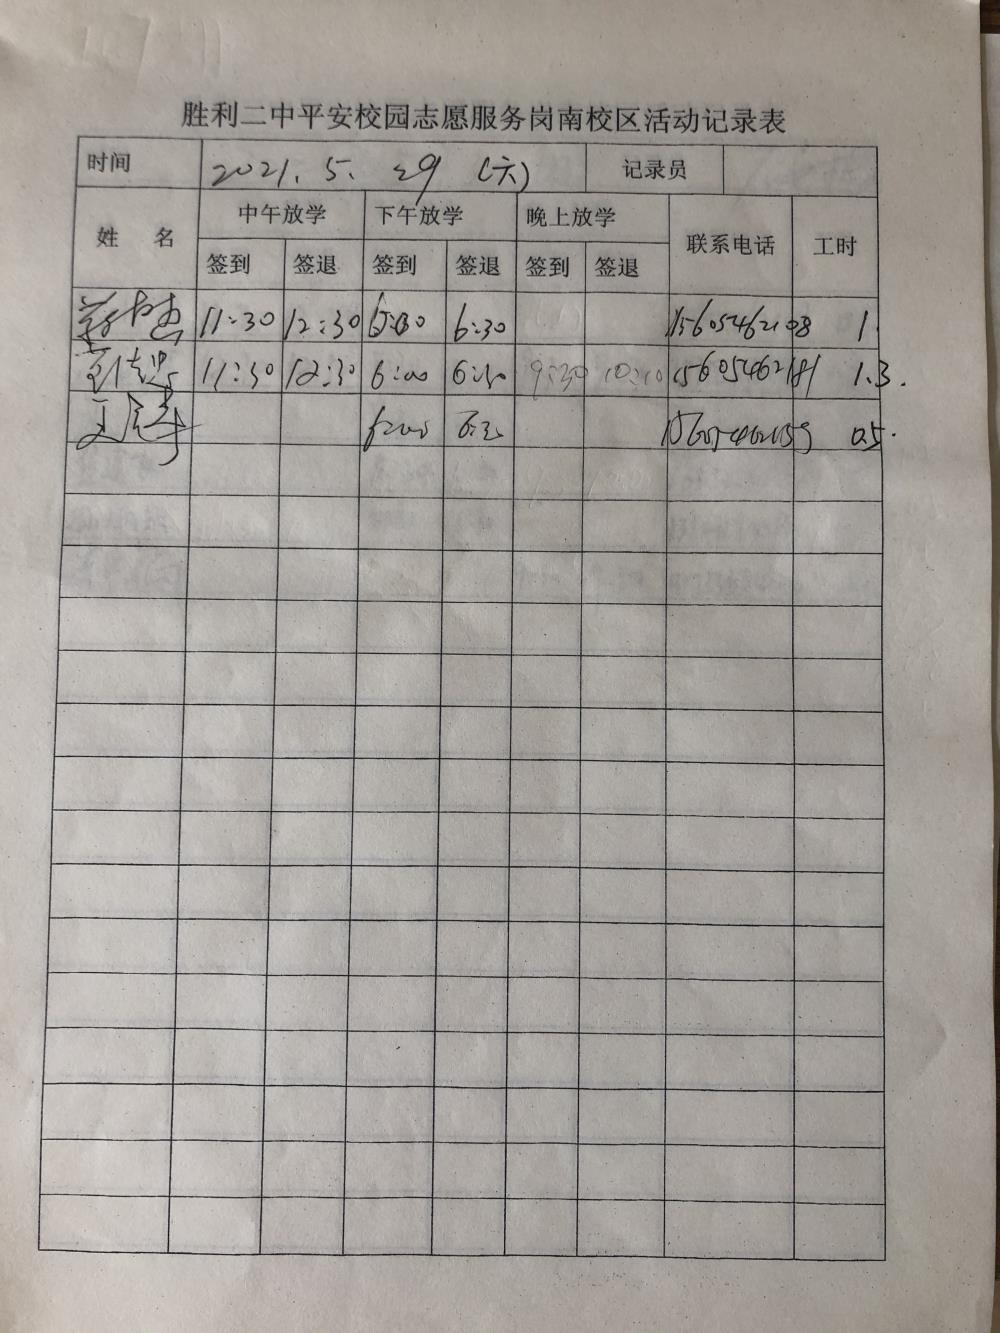 胜利二中平安校园志愿服务岗南校区活动记录表
时间 2021.5.29 (六) 记录员
姓名 中午放学 下午放学 晚上放学 联系电话 工时
签到 签退 签到 签退 签到 签退
11:30 12:30 6:30 15605462108 1
11:30 12:30 6:00 6:30 9:30 10:10 15605462181 1.3.
0.5.